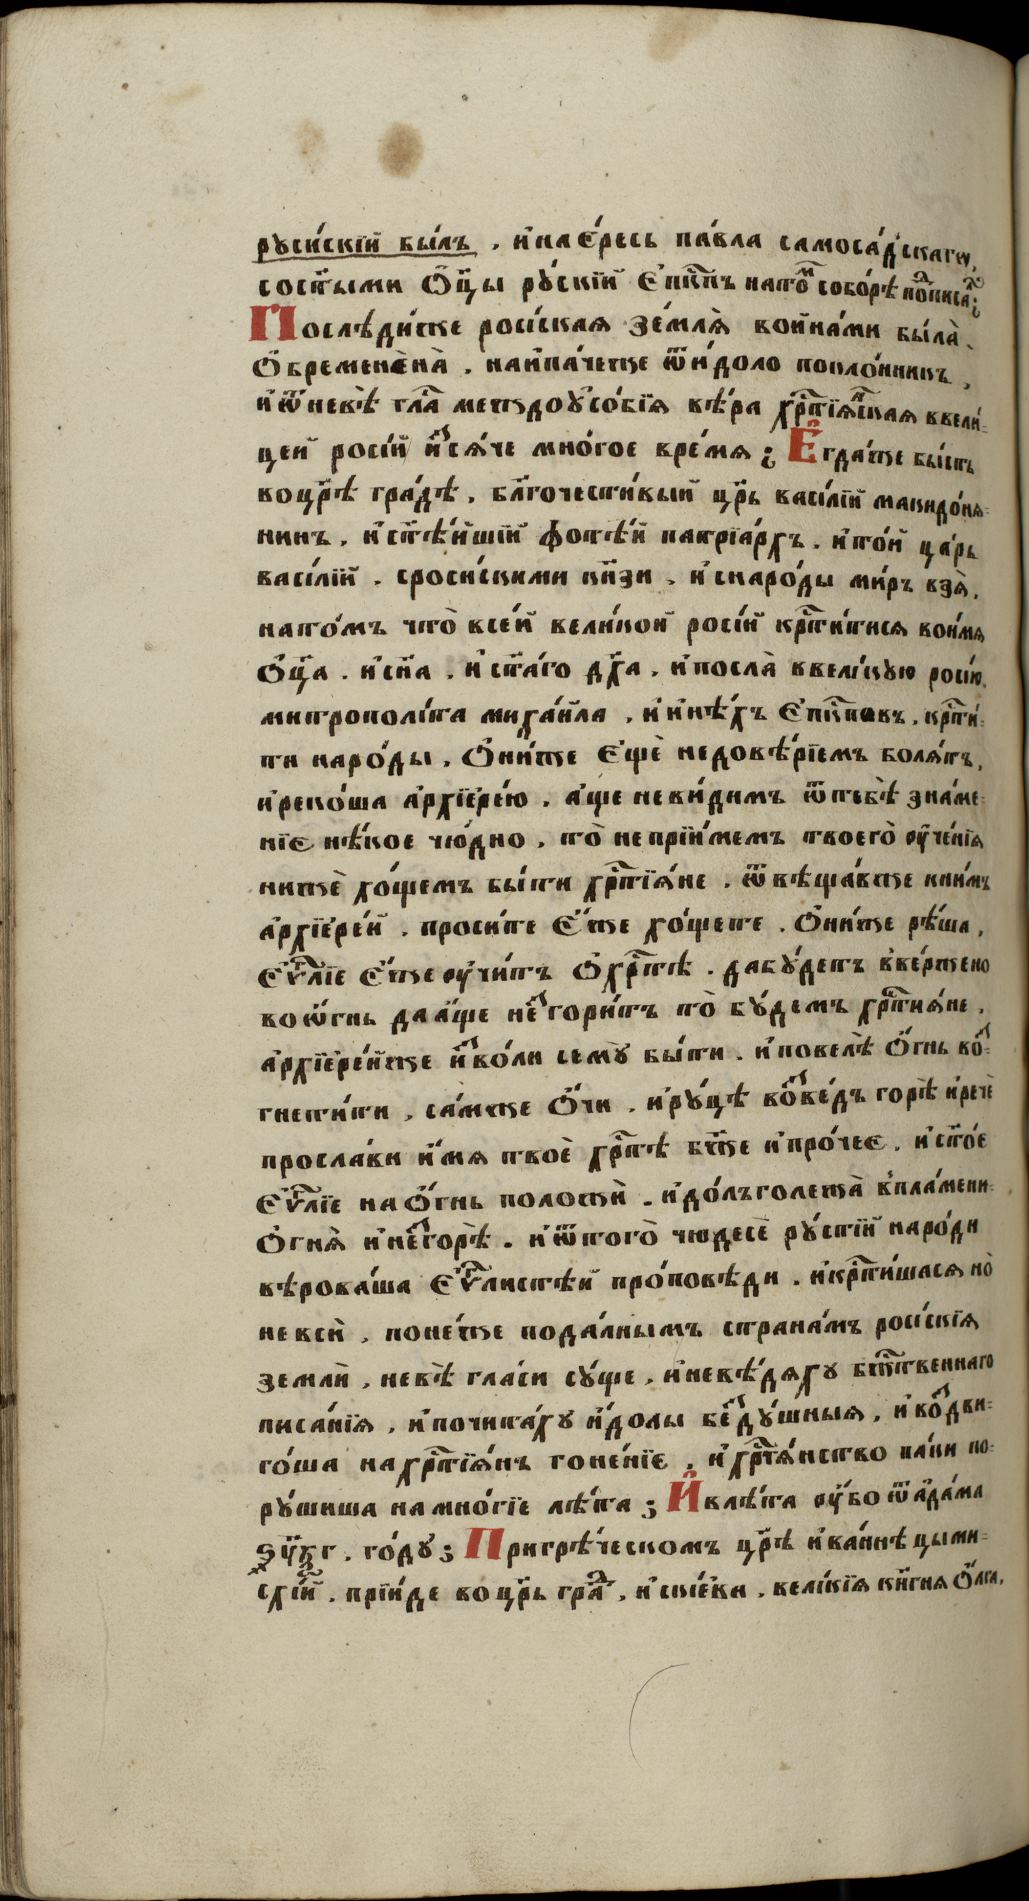 руси́скїй бы́лъ . и҆на є҆́ресь па́вла самоса́дскагѡ,
сост҃ы́ми ѻ҆ц҃ы рꙋ́скїй є҆пкⷭ҇пъ натоⷨ собо́рѣ поⷣписаⷧ҇;
Послѣди́же росі́йская зе́млѧ̀ война́ми была̀,
ѻ҆бремененà . наи҆па́чеже ѿи́доло покло́нникъ,
и҆ѿневѣ̀ глаⷭ҇ междоꙋсо́бїѧ вѣ́ра хрⷭ҇тїѧⷩ҇ская ввели́-
цей росі́й и҆ⷥсѧ́че мно́гое вре́мѧ; Є҆гда́же бы́сть
воцр҃ѣ гра́дѣ . бл҃гочести́вый цр҃ь васі́лїй македо́нѧ-
нинъ . и҆ст҃ѣ́йшїй фоте́й патрїа́рхъ . и҆то́й ца́рь
васі́лїй . сросі́йскими кн҃зи . и҆снаро́ды ми́ръ взѧ̀,
нато́мъ что̀ все́й вели́кой росі́й крⷭ҇ти́тисѧ вои́мѧ
ѻ҆ц҃а . и҆сн҃а . и҆ст҃а́го дх҃а . и҆посла̀ ввели́кꙋю росі́ю,
митрополи́та миха́йла . и҆и҆нѣ́хъ є҆пкⷭ҇повъ . крⷭ҇ти́-
ти наро́ды . ѻ҆ни́же є҆щѐ недовѣ́рїемъ болѧ́тъ,
и҆реко́ша а҆рхїере́ю . а҆́ще неви́димъ ѿтебѣ̀ зна́ме-
нїе нѣ́кое чю́дно . то̀ непрїи́мемъ твоего̀ оу҆че́нїѧ
нижѐ хо́щемъ бы́ти хрⷭ҇тїѧ́не . ѿвѣща́вже кни́мъ
а҆рхїере́й . проси́те є҆́же хо́щете . ѻ҆ни́же рѣ́ша,
є҆ѵⷢ҇лїе є҆́же оу҆чи́тъ ѻ҆хрⷭ҇тѣ̀ . дабꙋ́детъ вве́ржено
воѻ҆́гнь даа҆́ще неⷥгори́тъ то̀ бꙋ́демъ хрⷭ҇тиѧ́не,
а҆рхїере́йже и҆ⷥво́ли семꙋ̀ бы́ти . и҆повелѣ̀ ѻ҆́гнь воⷥ-
гнети́ти . са́мже ѻ҆́чи . и҆рꙋ́цѣ воⷥве́дъ горѣ̀ и҆речѐ
просла́ви и҆́мѧ твоѐ хрⷭ҇тѐ бж҃е и҆про́чее . и҆ст҃о́е
є҆ѵⷢ҇лїе наѻ҆́гнь положѝ . и҆до́лъголежа̀ впла́мени-
ѻ҆гнѧ̀ и҆неⷥгорѣ̀ . и҆ѿтого̀ чюдесѐ рꙋ́стїй наро́ди
вѣ́роваша є҆ѵⷢ҇листѣ́й про́повѣди . и҆крⷭ҇ти́шасѧ но̀
невсѝ . поне́же пода́лнымъ страна́мъ росі́йскїѧ
землѝ . невѣ̀ гла́си сꙋ́ще . и҆невѣ́дѧхꙋ бжⷭ҇твеннаго
писа́нїѧ . и҆почита́хꙋ и҆́долы беⷥдꙋ́шныѧ . и҆воⷥдви-
го́ша нахрⷭ҇тїѧ́нъ гоне́нїе . и҆хрⷭ҇тїѧ́нство па́ки по-
рꙋ́шиша намно́гїе лѣ́та ; И҆влѣ́та оу҆́бо ѿа҆да́ма
҂ѕꙋ҃кг . го́дꙋ ; Пригре́ческомъ цр҃ѣ и҆ва́ннѣ цыми-
схїⷭ҇й . прїи́де воцр҃ь граⷣ . и҆скі́ева . вели́кїѧ кн҃гня ѻ҆́лга,